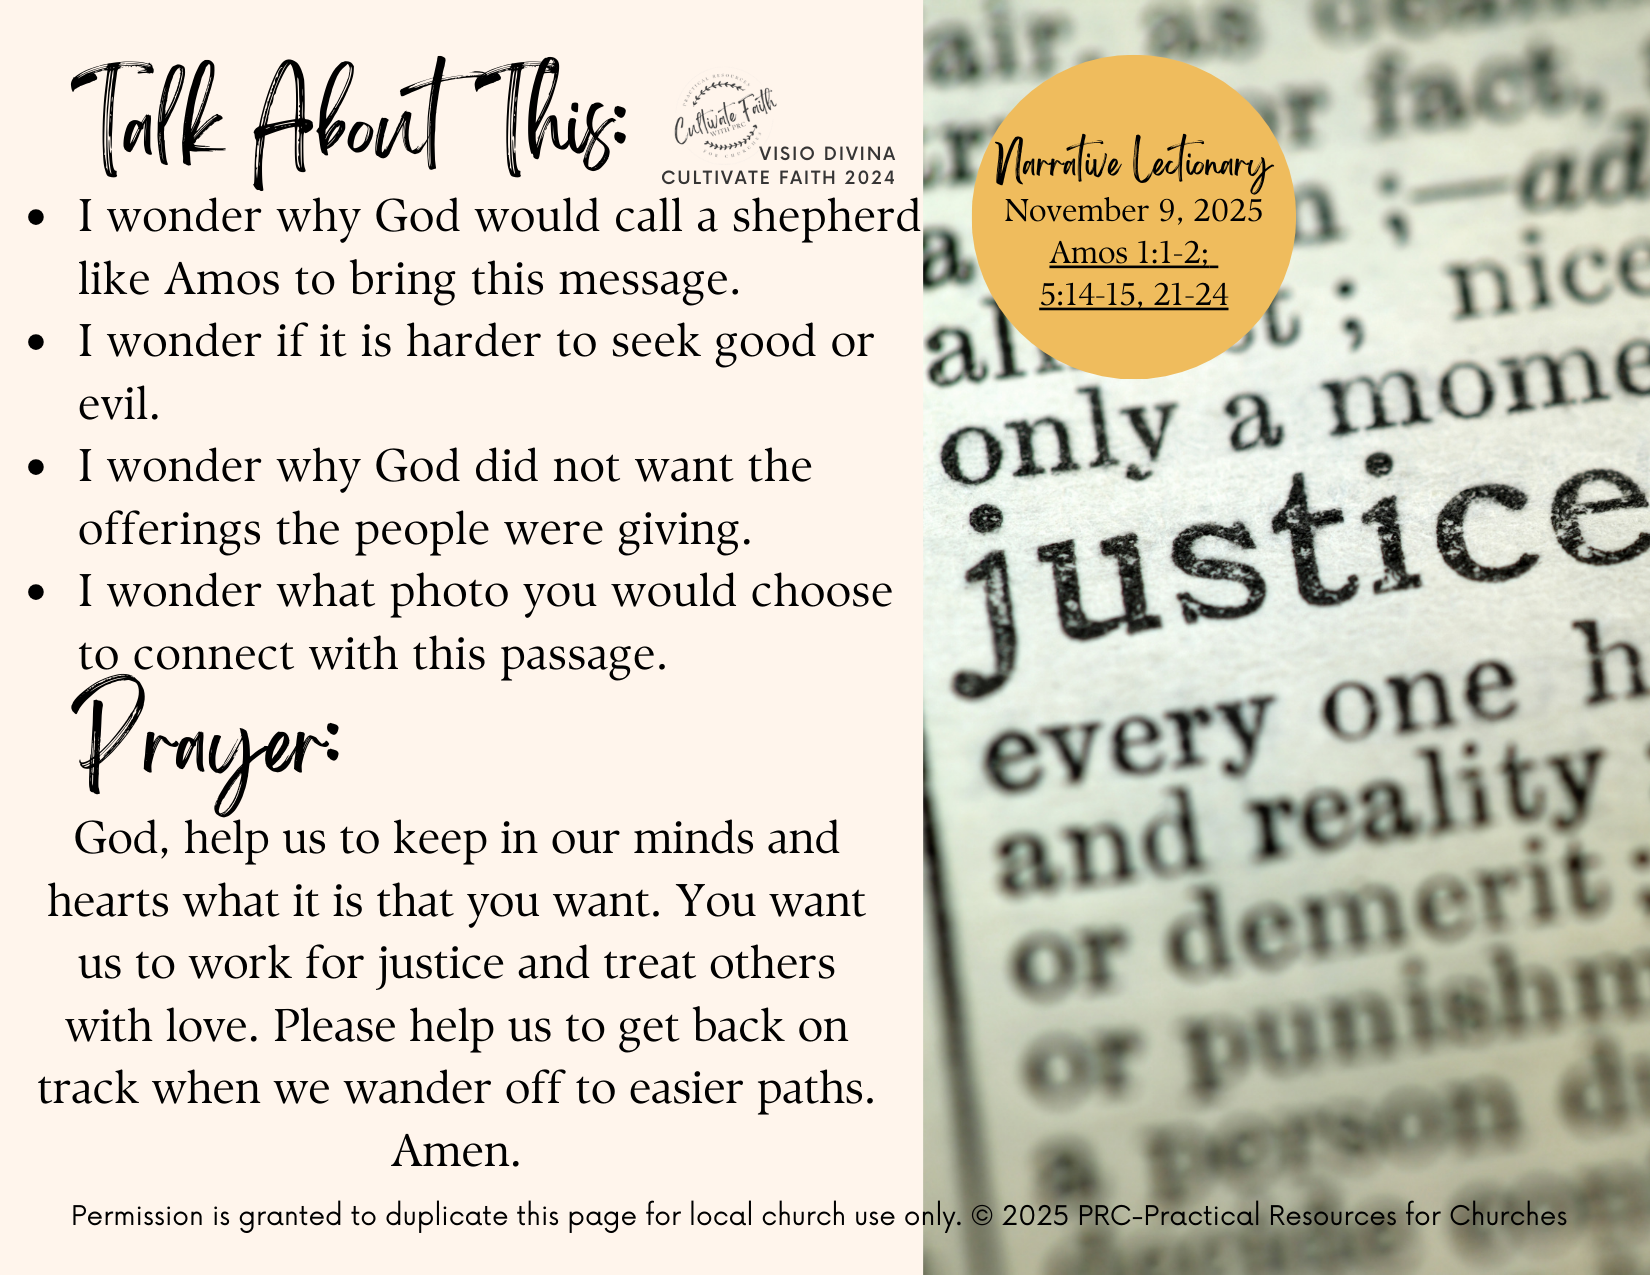 Talk About This:
PRACTICAL RESOURCES
Cultivate Faith
WITH PRC
FOR CHURCHES
VISIO DIVINA
CULTIVATE FAITH 2024
• I wonder why God would call a shepherd
like Amos to bring this message.
• I wonder if it is harder to seek good or
evil.
• I wonder why God did not want the
offerings the people were giving.
• I wonder what photo you would choose
to connect with this passage.
Prayer:
God, help us to keep in our minds and
hearts what it is that you want. You want
us to work for justice and treat others
with love. Please help us to get back on
track when we wander off to easier paths.
Amen.
Narrative Lectionary
November 9, 2025
Amos 1:1-2;
5:14-15, 21-24
air, as
or fact,
;—ad
; nice
only a mome
justice
every one h
and reality
or demerit ;
or punishm
a person d
Permission is granted to duplicate this page for local church use only. © 2025 PRC-Practical Resources for Churches